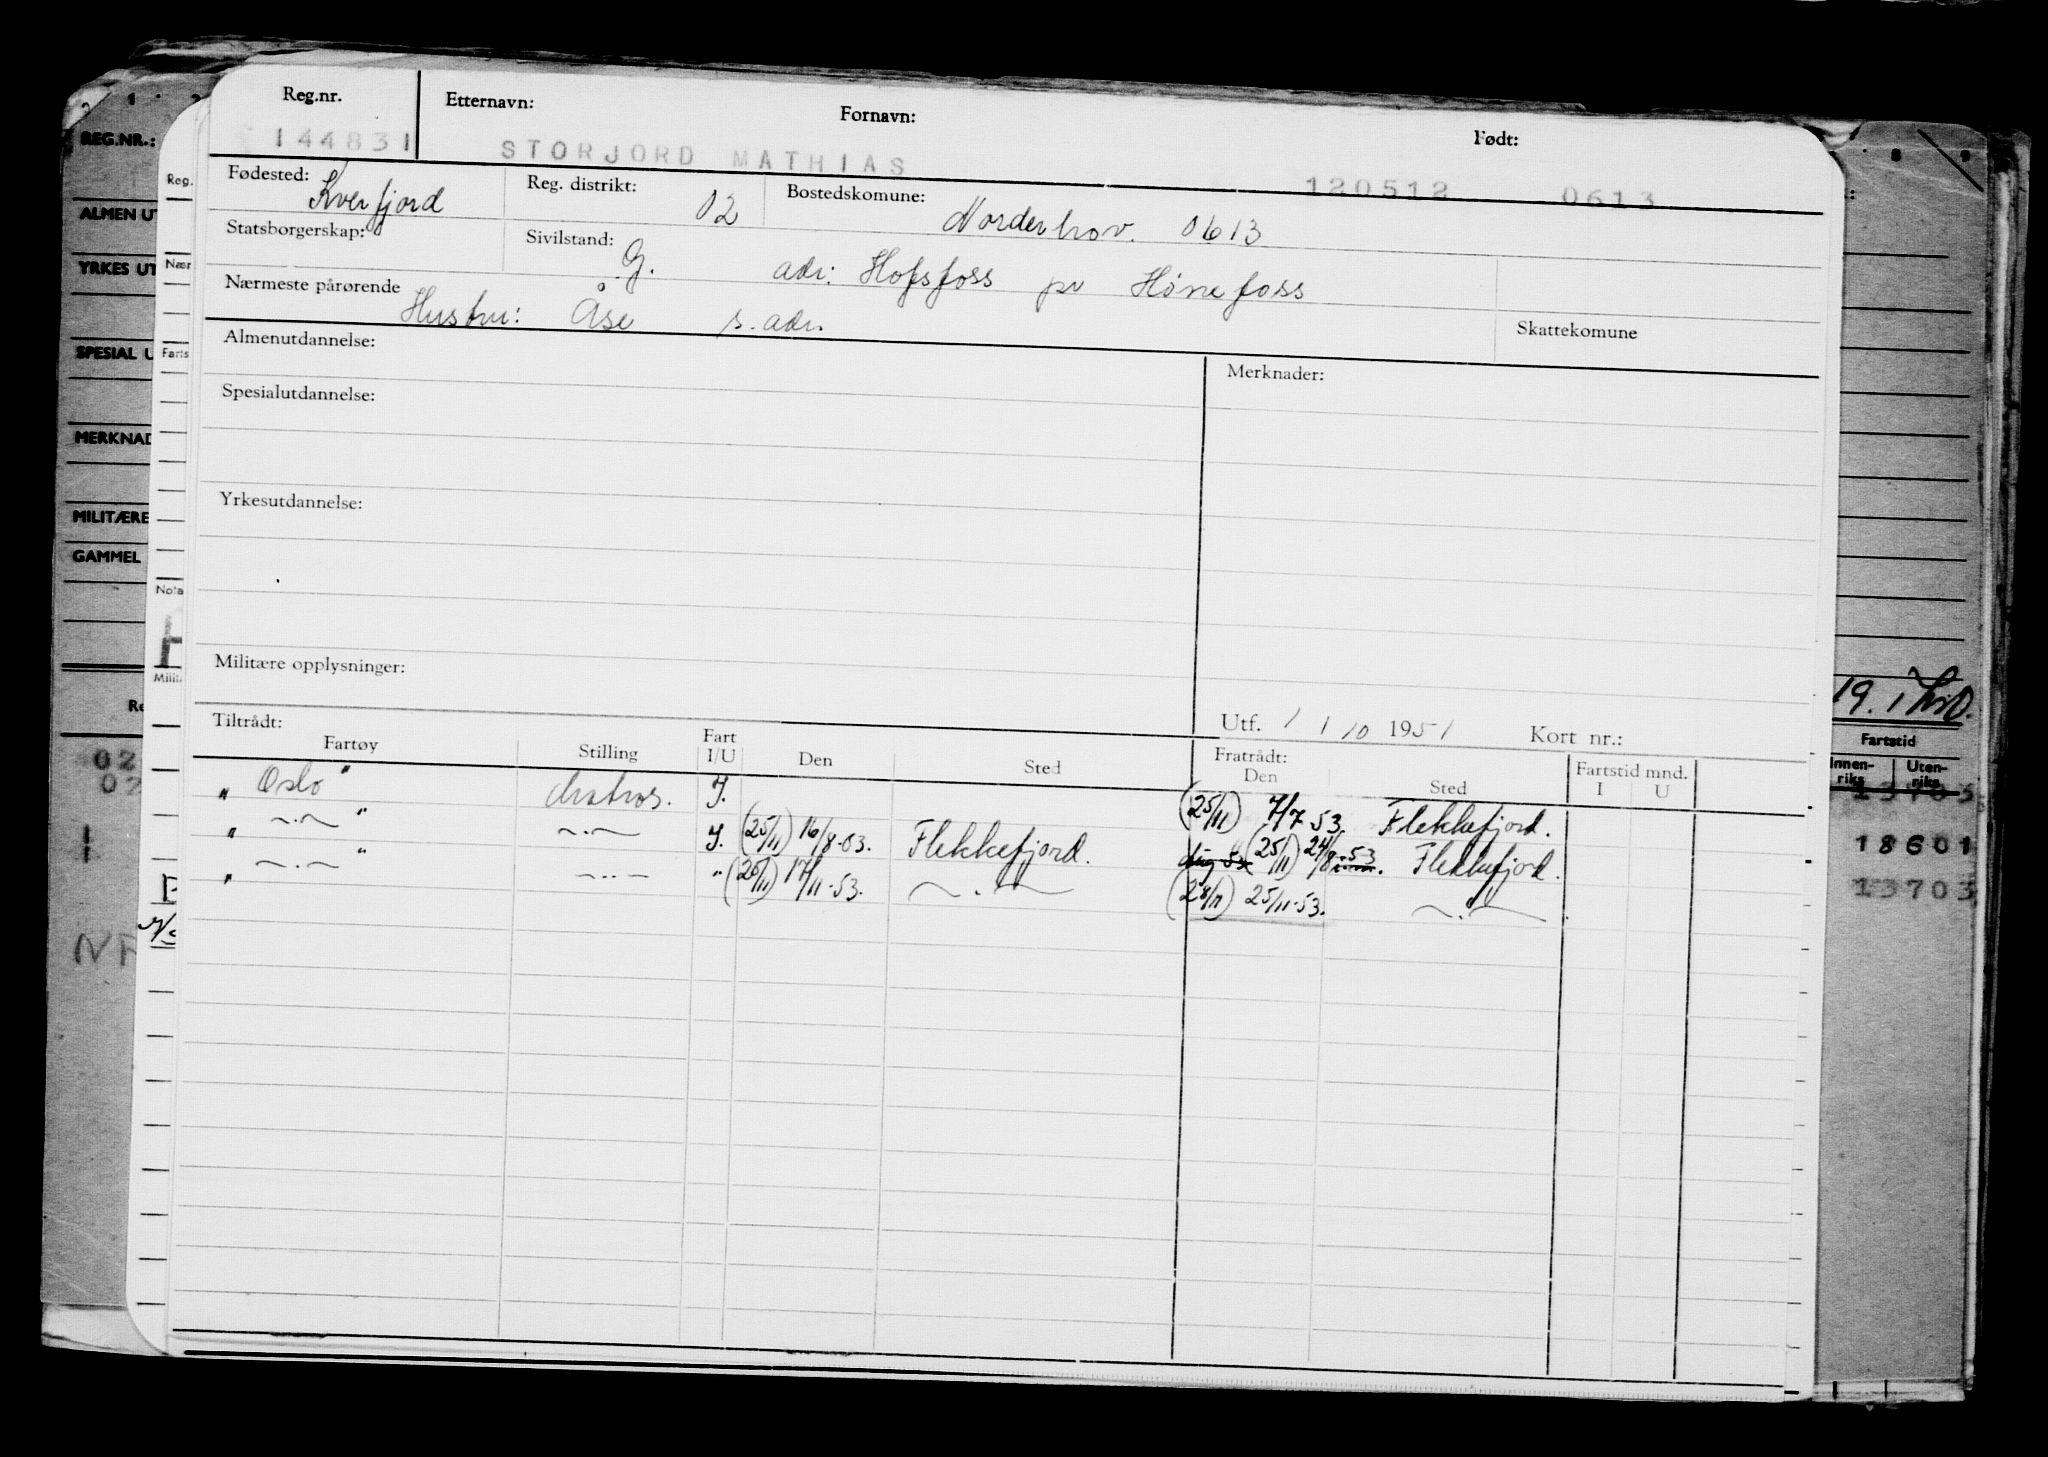 Reg.nr. Etternavn: Fornavn: Født:
144831 STORJORD MATHIAS 120512 0613
Fødested: Kverfjord Reg. distrikt: 02 Bostedskomune: Norderhov. 0613
Statsborgerskap: Sivilstand: G. adr: Hofsfoss pr Hønefoss
Nærmeste pårørende Hustru: Åse s. adr. Skattekomune
Almenutdannelse: Merknader:
Spesialutdannelse:
Yrkesutdannelse:
Militære opplysninger:
Tiltrådt: Utf. 1 / 10 1951 Kort nr.:
Fartøy Stilling Fart I/U Den Sted Fratrådt: Den Sted Fartstid mnd. I U
" Oslo " Matros. I. (25/11) 7/7 53. Flekkefjord.
" —.— " —.— I. (25/11) 16/8-53. Flekkefjord. aug 53 (25/11) 24/8-53. Flekkefjord.
" —.— " —..— " (28/11) 17/11-53. —.— (28/11) 25/11-53. —.—
REG.NR.:
ALMEN UT
YRKES UT
SPESIAL U
MERKNAD
MILITÆRE
GAMMEL
Reg.
Nær
Farts
Nota
Milit
02
02
NF
8 9
19.
Fartstid
Innen-riks Uten-riks
13703
18601
13703